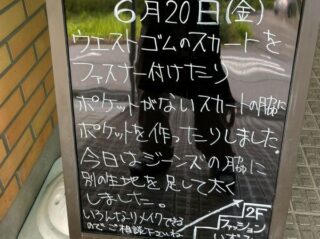 6月20日(金)
ウエストゴムのスカートを
ファスナー付けたり
ポケットがないスカートの脇に
ポケットを作ったりしました。
今日はジーンズの脇に
別の生地を足して太く
しました。
いろんなリメイクできる
のでご相談下さいね
2F
ファッション